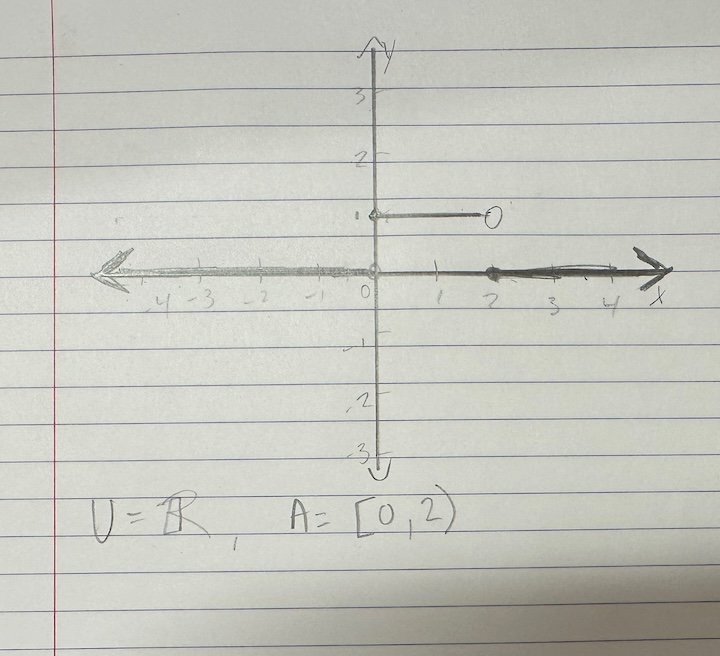 y
3
2
1
-4 -3 -2 -1 0 1 2 3 4 x
-1
-2
-3
U = ℝ, A = [0, 2)